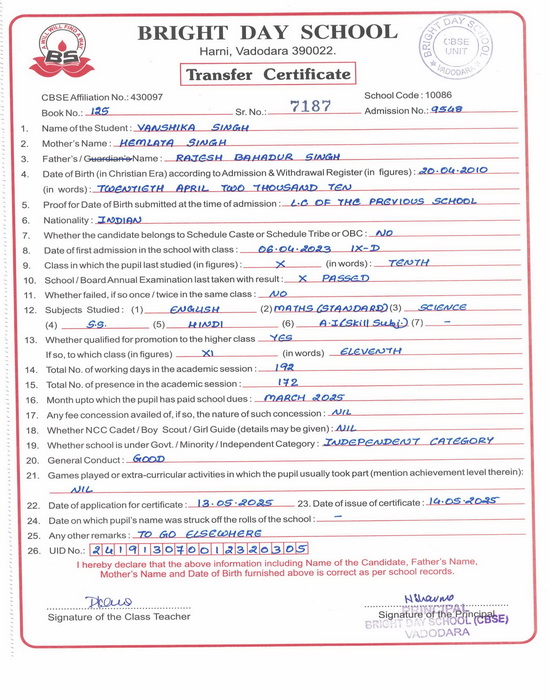 A WILL WILL FIND A WAY
BS
BRIGHT DAY SCHOOL
Harni, Vadodara 390022.
BRIGHT DAY SCHOOL
CBSE
UNIT
VADODARA
Transfer Certificate
CBSE Affiliation No.: 430097 School Code : 10086
Book No.: 125 Sr. No.: 7187 Admission No.: 9548
1. Name of the Student : VANSHIKA SINGH
2. Mother's Name : HEMLATA SINGH
3. Father's / Guardian's Name : RAJESH BAHADUR SINGH
4. Date of Birth (in Christian Era) according to Admission & Withdrawal Register (in figures) : 20.04.2010
(in words) : TWENTIETH APRIL TWO THOUSAND TEN
5. Proof for Date of Birth submitted at the time of admission : L.C OF THE PREVIOUS SCHOOL
6. Nationality : INDIAN
7. Whether the candidate belongs to Schedule Caste or Schedule Tribe or OBC : NO
8. Date of first admission in the school with class : 06.04.2023 IX-D
9. Class in which the pupil last studied (in figures) : X (in words) : TENTH
10. School / Board Annual Examination last taken with result : X PASSED
11. Whether failed, if so once / twice in the same class : NO
12. Subjects Studied : (1) ENGLISH (2) MATHS (STANDARD) (3) SCIENCE
(4) S.S. (5) HINDI (6) A.I (Skill Subj.) (7) –
13. Whether qualified for promotion to the higher class YES
If so, to which class (in figures) XI (in words) ELEVENTH
14. Total No. of working days in the academic session : 192
15. Total No. of presence in the academic session : 172
16. Month upto which the pupil has paid school dues : MARCH 2025
17. Any fee concession availed of, if so, the nature of such concession : NIL
18. Whether NCC Cadet / Boy Scout / Girl Guide (details may be given) : NIL
19. Whether school is under Govt. / Minority / Independent Category : INDEPENDENT CATEGORY
20. General Conduct : GOOD
21. Games played or extra-curricular activities in which the pupil usually took part (mention achievement level therein):
NIL
22. Date of application for certificate : 13.05.2025 23. Date of issue of certificate : 14.05.2025
24. Date on which pupil's name was struck off the rolls of the school : –
25. Any other remarks : TO GO ELSEWHERE
26. UID No.: 241913070012320305
I hereby declare that the above information including Name of the Candidate, Father's Name,
Mother's Name and Date of Birth furnished above is correct as per school records.
Signature of the Class Teacher Signature of the Principal
PRINCIPAL
BRIGHT DAY SCHOOL (CBSE)
VADODARA